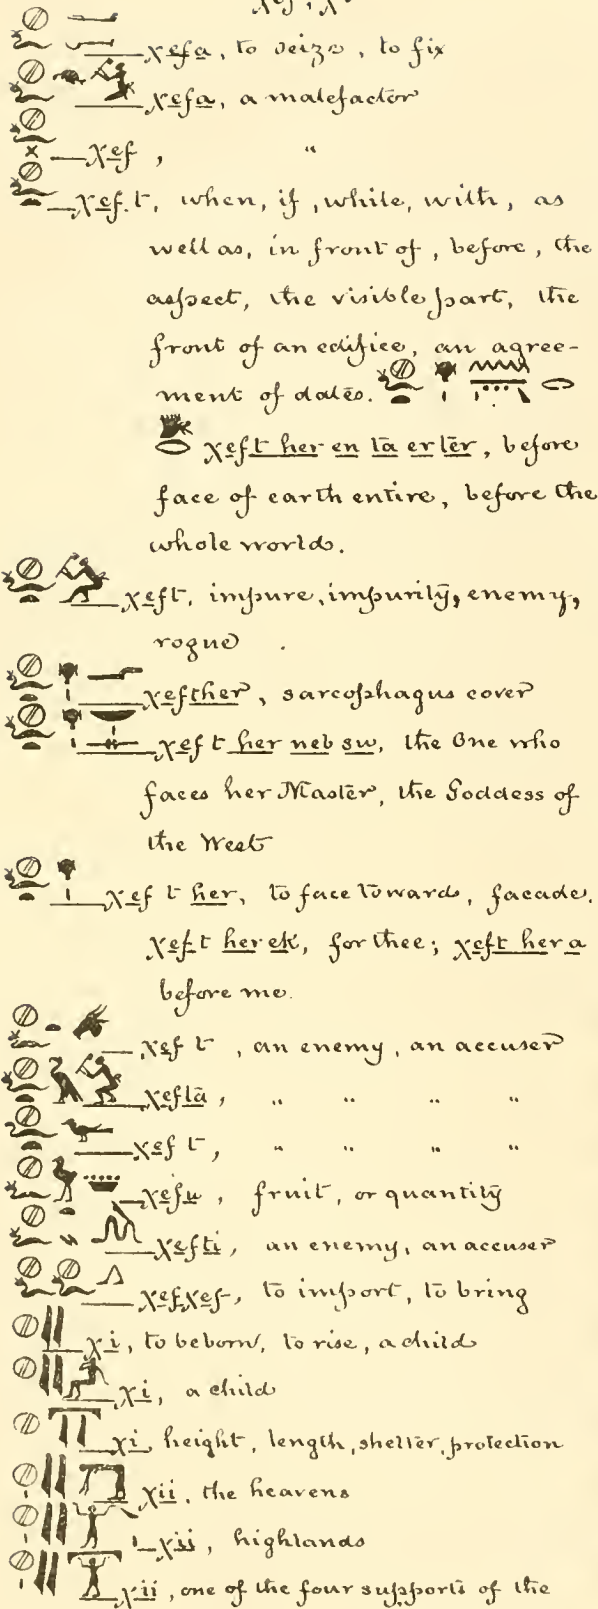 χefa, to seize, to fix
χefa, a malefactor
χef, "
χef.t, when, if, while, with, as
well as, in front of, before, the
aspect, the visible part, the
front of an edifice, an agree-
ment of dates.
χeft her en ta er ter, before
face of earth entire, before the
whole world.
χeft, impure, impurity, enemy,
rogue.
χefther, sarcophagus cover
χef t her neb sw, the One who
faces her Master, the Goddess of
the West
χef t her, to face toward, facade.
χeft her ek, for thee; χeft her a
before me.
χef t, an enemy, an accuser
χefta, " " " "
χef t, " " " "
χefu, fruit, or quantity
χefti, an enemy, an accuser
χefχef, to import, to bring
χi, to be born, to rise, a child
χi, a child
χi, height, length, shelter, protection
χii, the heavens
χii, highlands
χii, one of the four supports of the